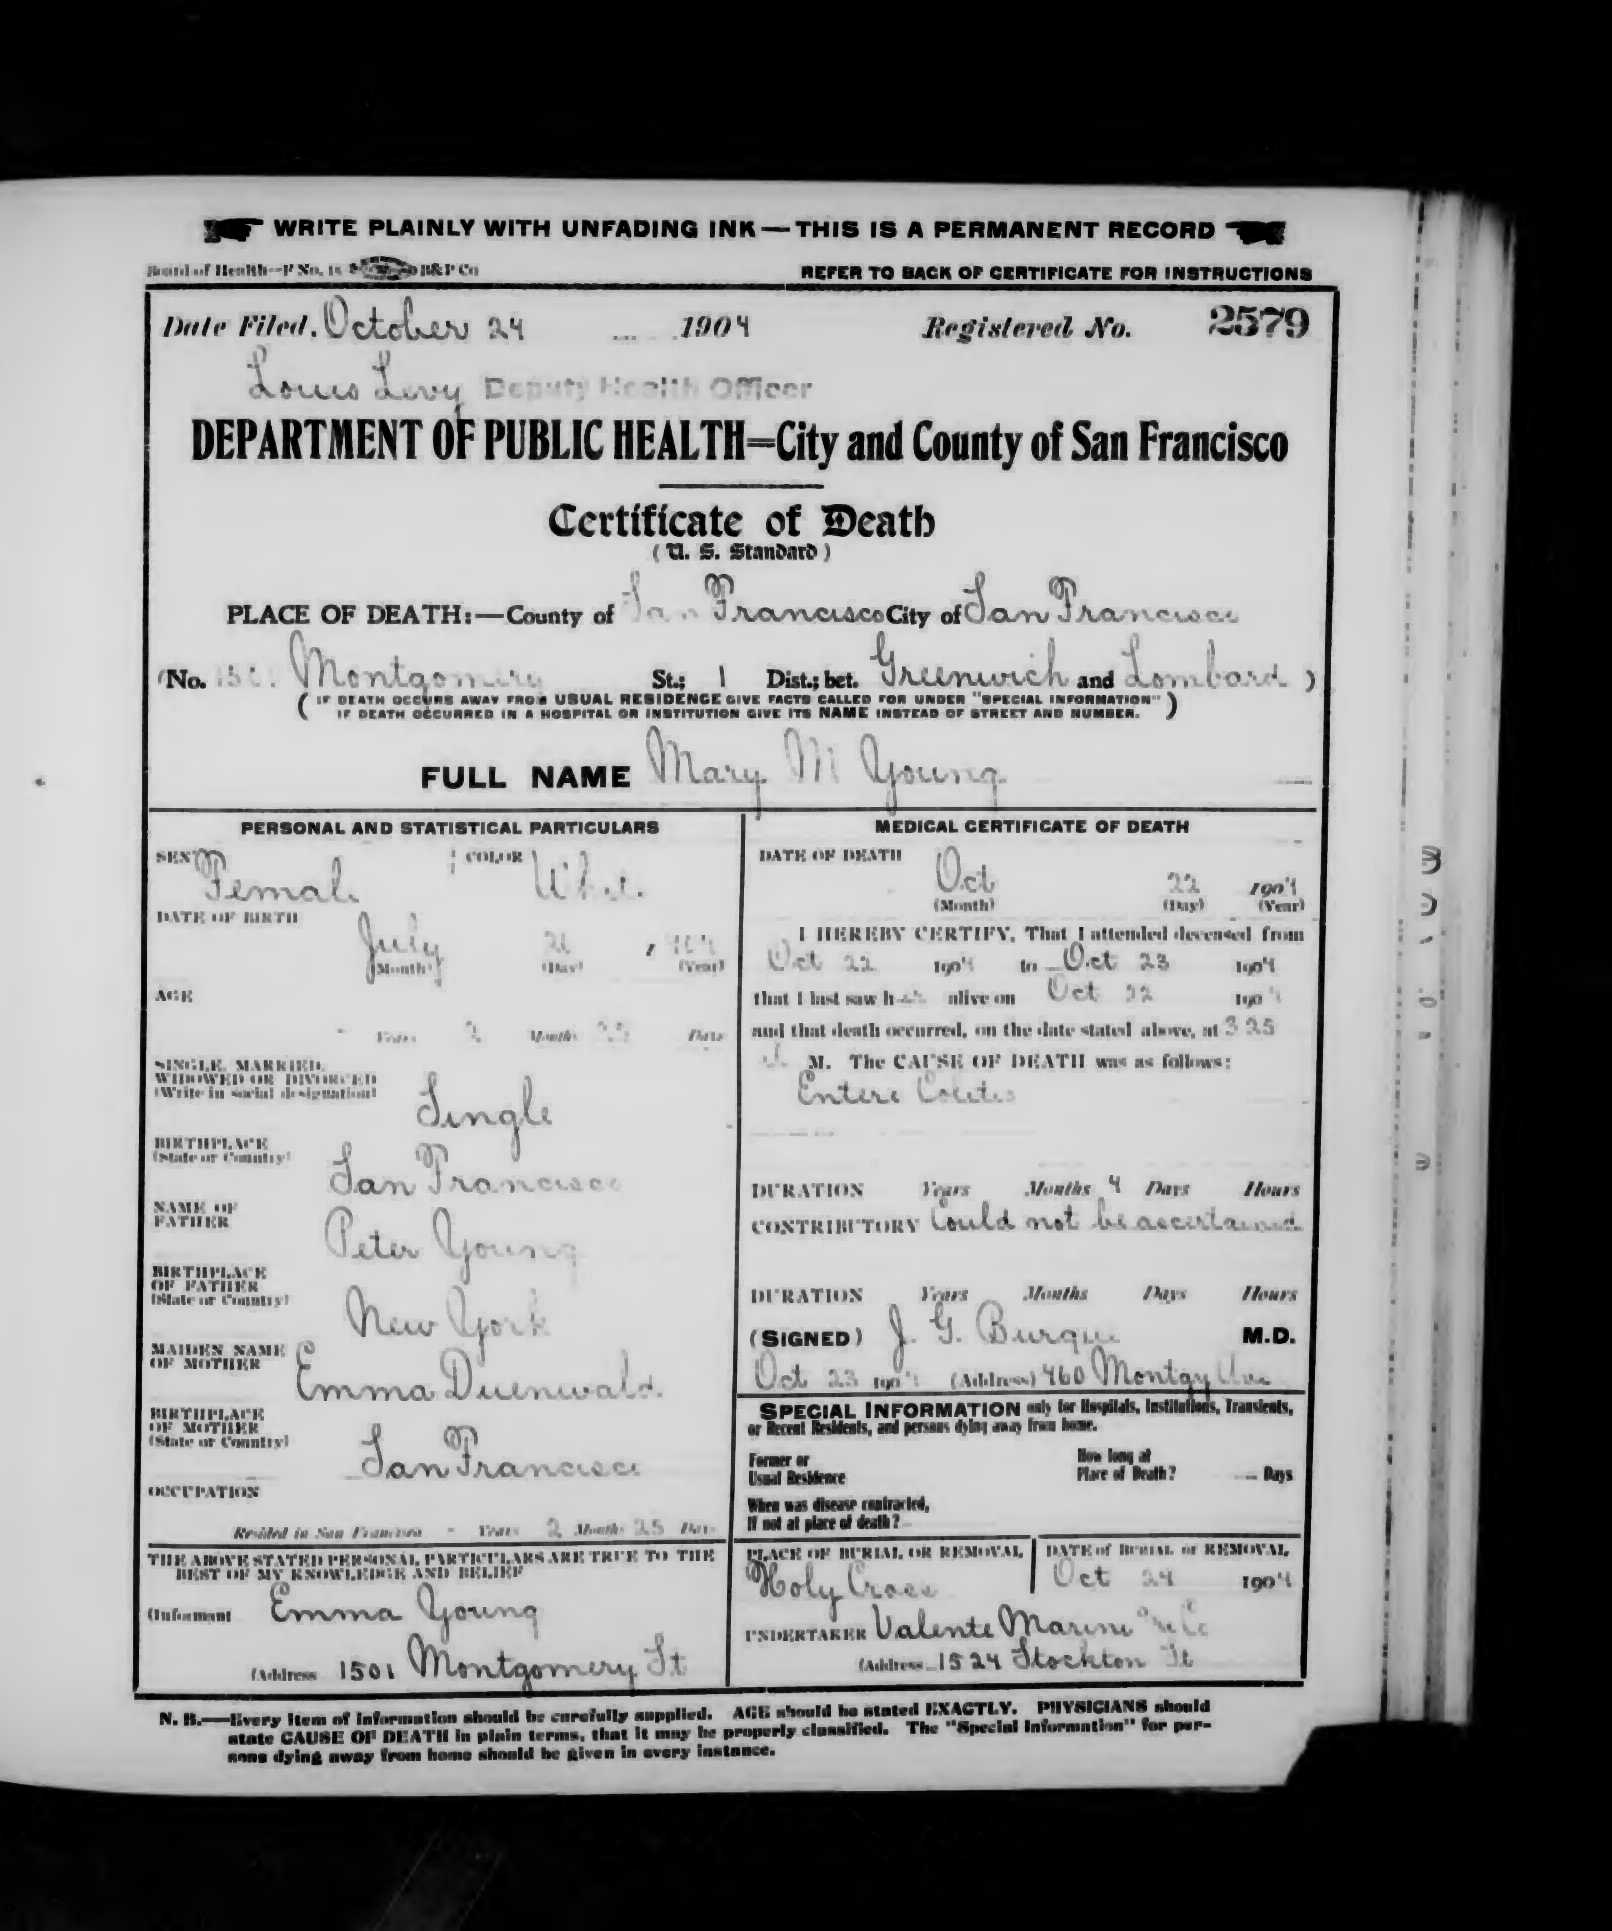 WRITE PLAINLY WITH UNFADING INK — THIS IS A PERMANENT RECORD
Board of Health—F No. 18 B&P Co
REFER TO BACK OF CERTIFICATE FOR INSTRUCTIONS
Date Filed, October 24 1904 Registered No. 2579
Louis Levy Deputy Health Officer
DEPARTMENT OF PUBLIC HEALTH=City and County of San Francisco
Certificate of Death
(U. S. Standard)
PLACE OF DEATH:—County of San Francisco City of San Francisco
(No. 1501 Montgomery St.; 1 Dist.; bet. Greenwich and Lombard)
(IF DEATH OCCURS AWAY FROM USUAL RESIDENCE GIVE FACTS CALLED FOR UNDER "SPECIAL INFORMATION"
IF DEATH OCCURRED IN A HOSPITAL OR INSTITUTION GIVE ITS NAME INSTEAD OF STREET AND NUMBER.)
FULL NAME Mary M Young
PERSONAL AND STATISTICAL PARTICULARS
SEX Female COLOR White
DATE OF BIRTH
July 1904
(Month) (Day) (Year)
AGE
- Years 2 Months 25 Days
SINGLE, MARRIED,
WIDOWED OR DIVORCED
(Write in social designation)
Single
BIRTHPLACE
(State or Country)
San Francisco
NAME OF
FATHER
Peter Young
BIRTHPLACE
OF FATHER
(State or Country)
New York
MAIDEN NAME
OF MOTHER
Emma Duenwald
BIRTHPLACE
OF MOTHER
(State or Country)
San Francisco
OCCUPATION
Resided in San Francisco - Years 2 Months 25 Days
THE ABOVE STATED PERSONAL PARTICULARS ARE TRUE TO THE
BEST OF MY KNOWLEDGE AND BELIEF
(Informant Emma Young
(Address 1501 Montgomery St
MEDICAL CERTIFICATE OF DEATH
DATE OF DEATH
Oct 22 1904
(Month) (Day) (Year)
I HEREBY CERTIFY, That I attended deceased from
Oct 22 1904 to Oct 23 1904
that I last saw her alive on Oct 22 1904
and that death occurred, on the date stated above, at 3 25
M. The CAUSE OF DEATH was as follows:
Entero Colitis
DURATION Years Months 4 Days Hours
CONTRIBUTORY Could not be ascertained
DURATION Years Months Days Hours
(SIGNED) J. G. Burque M.D.
Oct 23 1904 (Address) 460 Montgy Ave
SPECIAL INFORMATION only for Hospitals, Institutions, Transients,
or Recent Residents, and persons dying away from home.
Former or
Usual Residence
How long at
Place of Death? Days
When was disease contracted,
If not at place of death?
PLACE OF BURIAL OR REMOVAL
Holy Cross
DATE of BURIAL or REMOVAL
Oct 24 1904
UNDERTAKER Valente Marini & Co
(Address 1524 Stockton St
N. B.—Every item of information should be carefully supplied. AGE should be stated EXACTLY. PHYSICIANS should
state CAUSE OF DEATH in plain terms, that it may be properly classified. The "Special Information" for per-
sons dying away from home should be given in every instance.